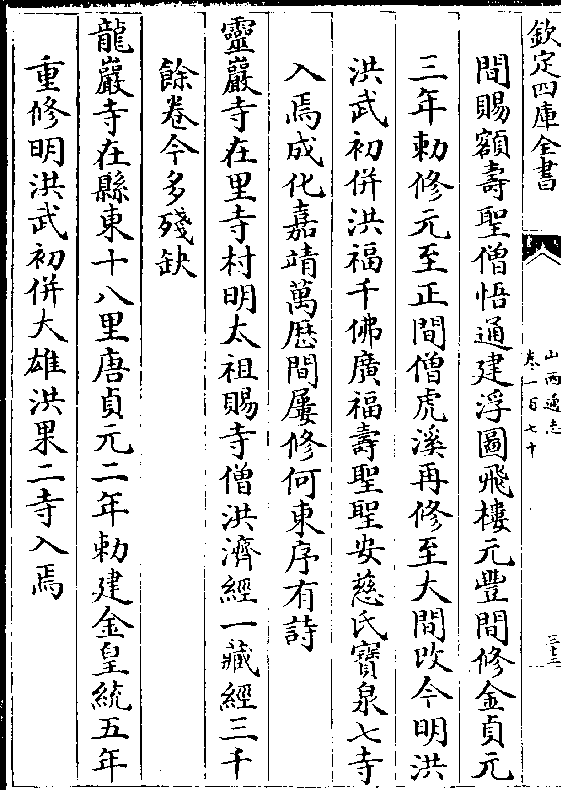 欽定四庫全書
山西通志
卷一百七十
三十三
間賜額壽聖僧悟通建浮圖飛樓元豐間修金貞元
三年勅修元至正間僧虎溪再修至大間改今明洪
洪武初併洪福千佛廣福壽聖聖安慈氏寳泉七寺
入焉成化嘉靖萬厯間屢修何東序有詩
靈巖寺在里寺村明太祖賜寺僧洪濟經一藏經三千
餘卷今多殘缺
龍巖寺在縣東十八里唐貞元二年勅建金皇統五年
重修明洪武初併大雄洪果二寺入焉